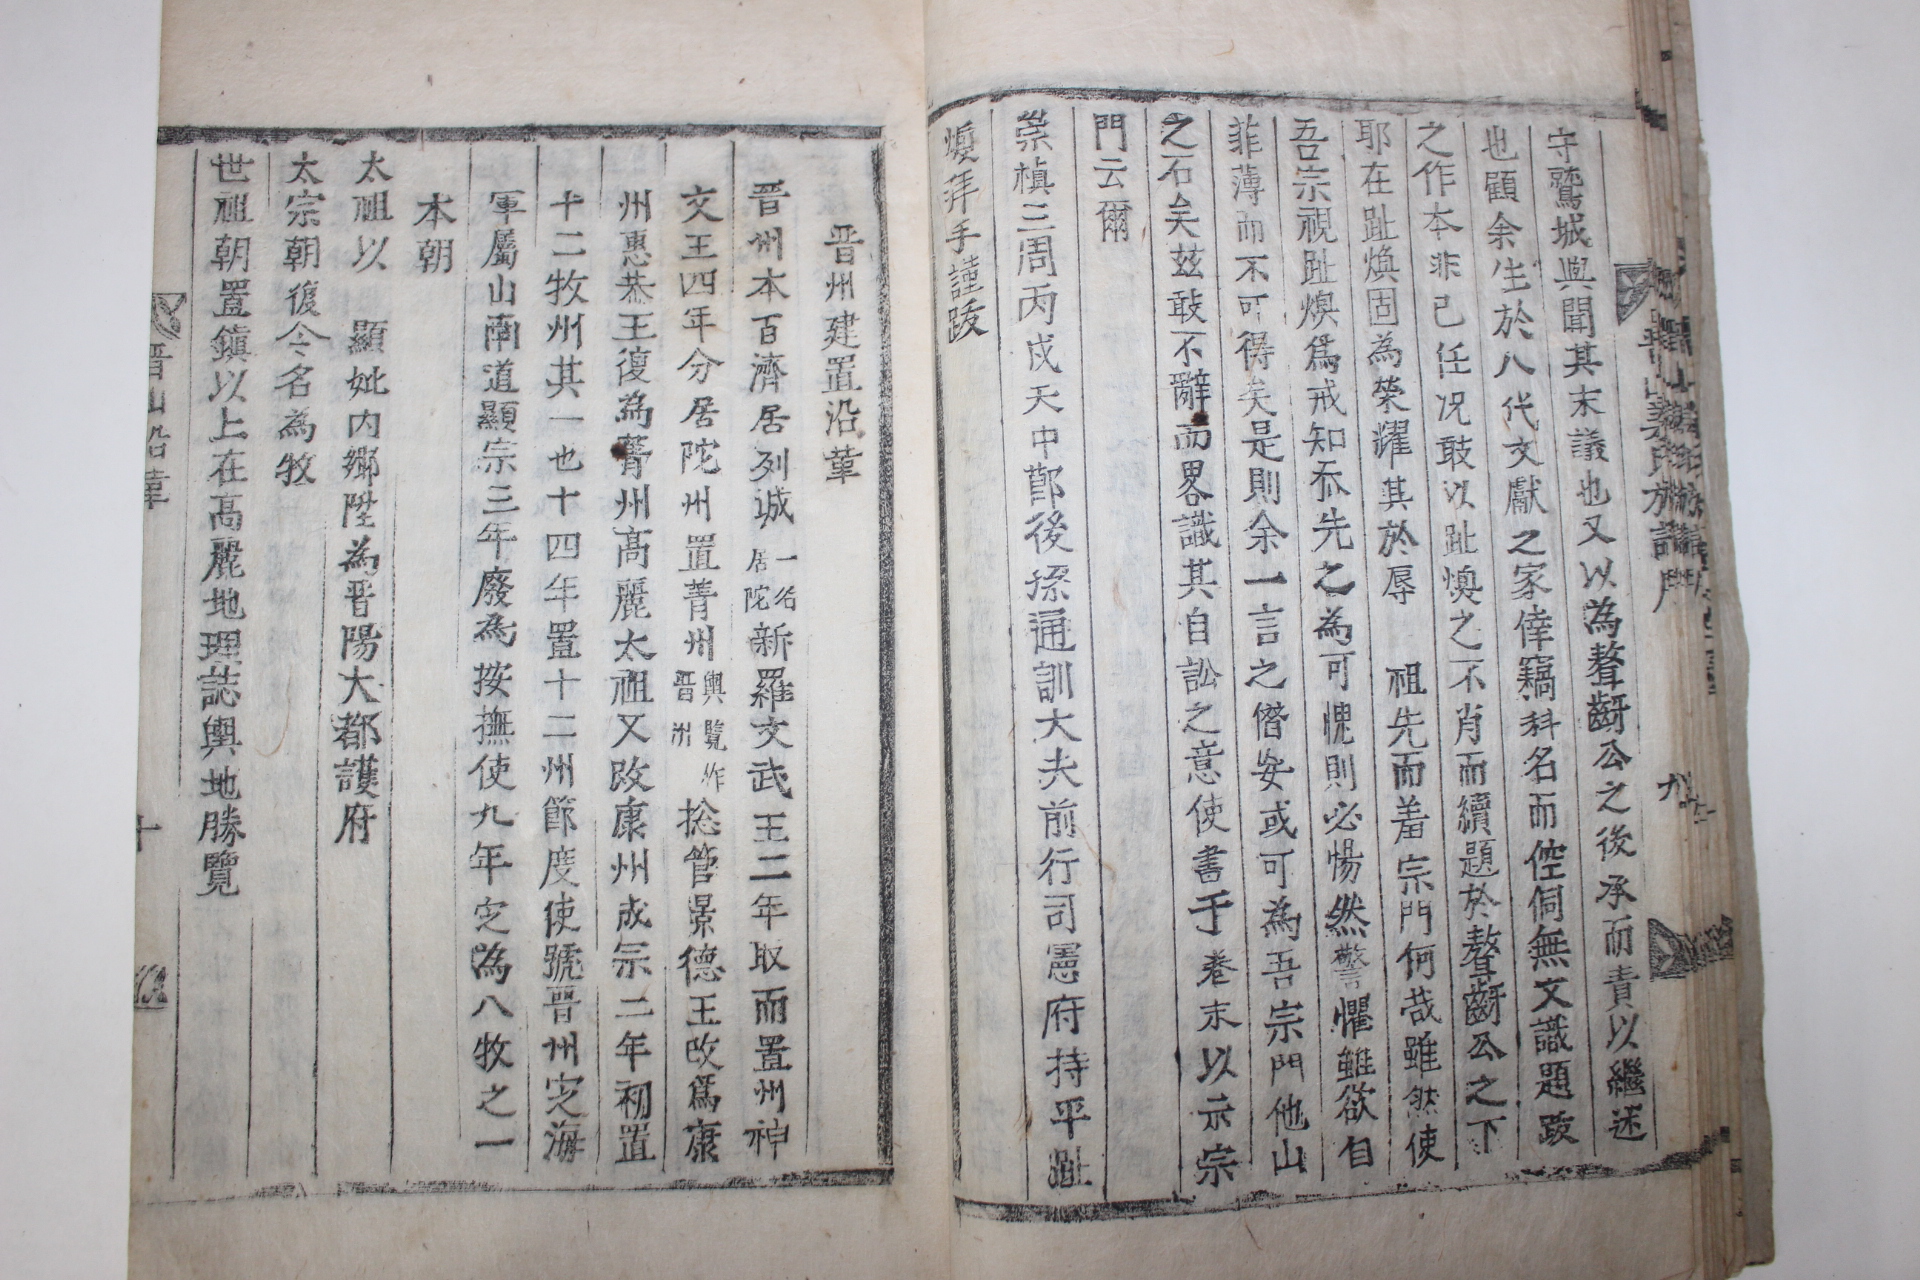 守鷲城與聞其末議也又以為聱齖公之後承而責以繼述
也顧余生於八代文獻之家倖竊科名而倥侗無文識題跋
之作本非己任况敢以趾煥之不肖而續題於聱齖公之下
耶在趾煥固為榮耀其於辱 祖先而羞宗門何哉雖然使
吾宗視趾煥爲戒知忝先之為可愧則必惕然警懼雖欲自
菲薄而不可得矣是則余一言之僭妄或可為吾宗門他山
之石矣玆敢不辭而畧識其自訟之意使書于卷末以示宗
門云爾
崇禎三周丙戌天中節後孫通訓大夫前行司憲府持平趾
煥拜手謹跋
晋山姜氏族譜
九
晋州建置沿革
晋州本百濟居列城一名居陀新羅文武王二年取而置州神
文王四年分居陀州置菁州輿覽作晋州捴管景德王改爲康
州惠恭王復為菁州高麗太祖又改康州成宗二年初置
十二牧州其一也十四年置十二州節度使號晋州定海
軍屬山南道顯宗三年廢為按撫使九年定為八牧之一
本朝
太祖以 顯妣內鄉陞為晋陽大都護府
太宗朝復今名為牧
世祖朝置鎮以上在高麗地理誌輿地勝覽
晋山沿革
十